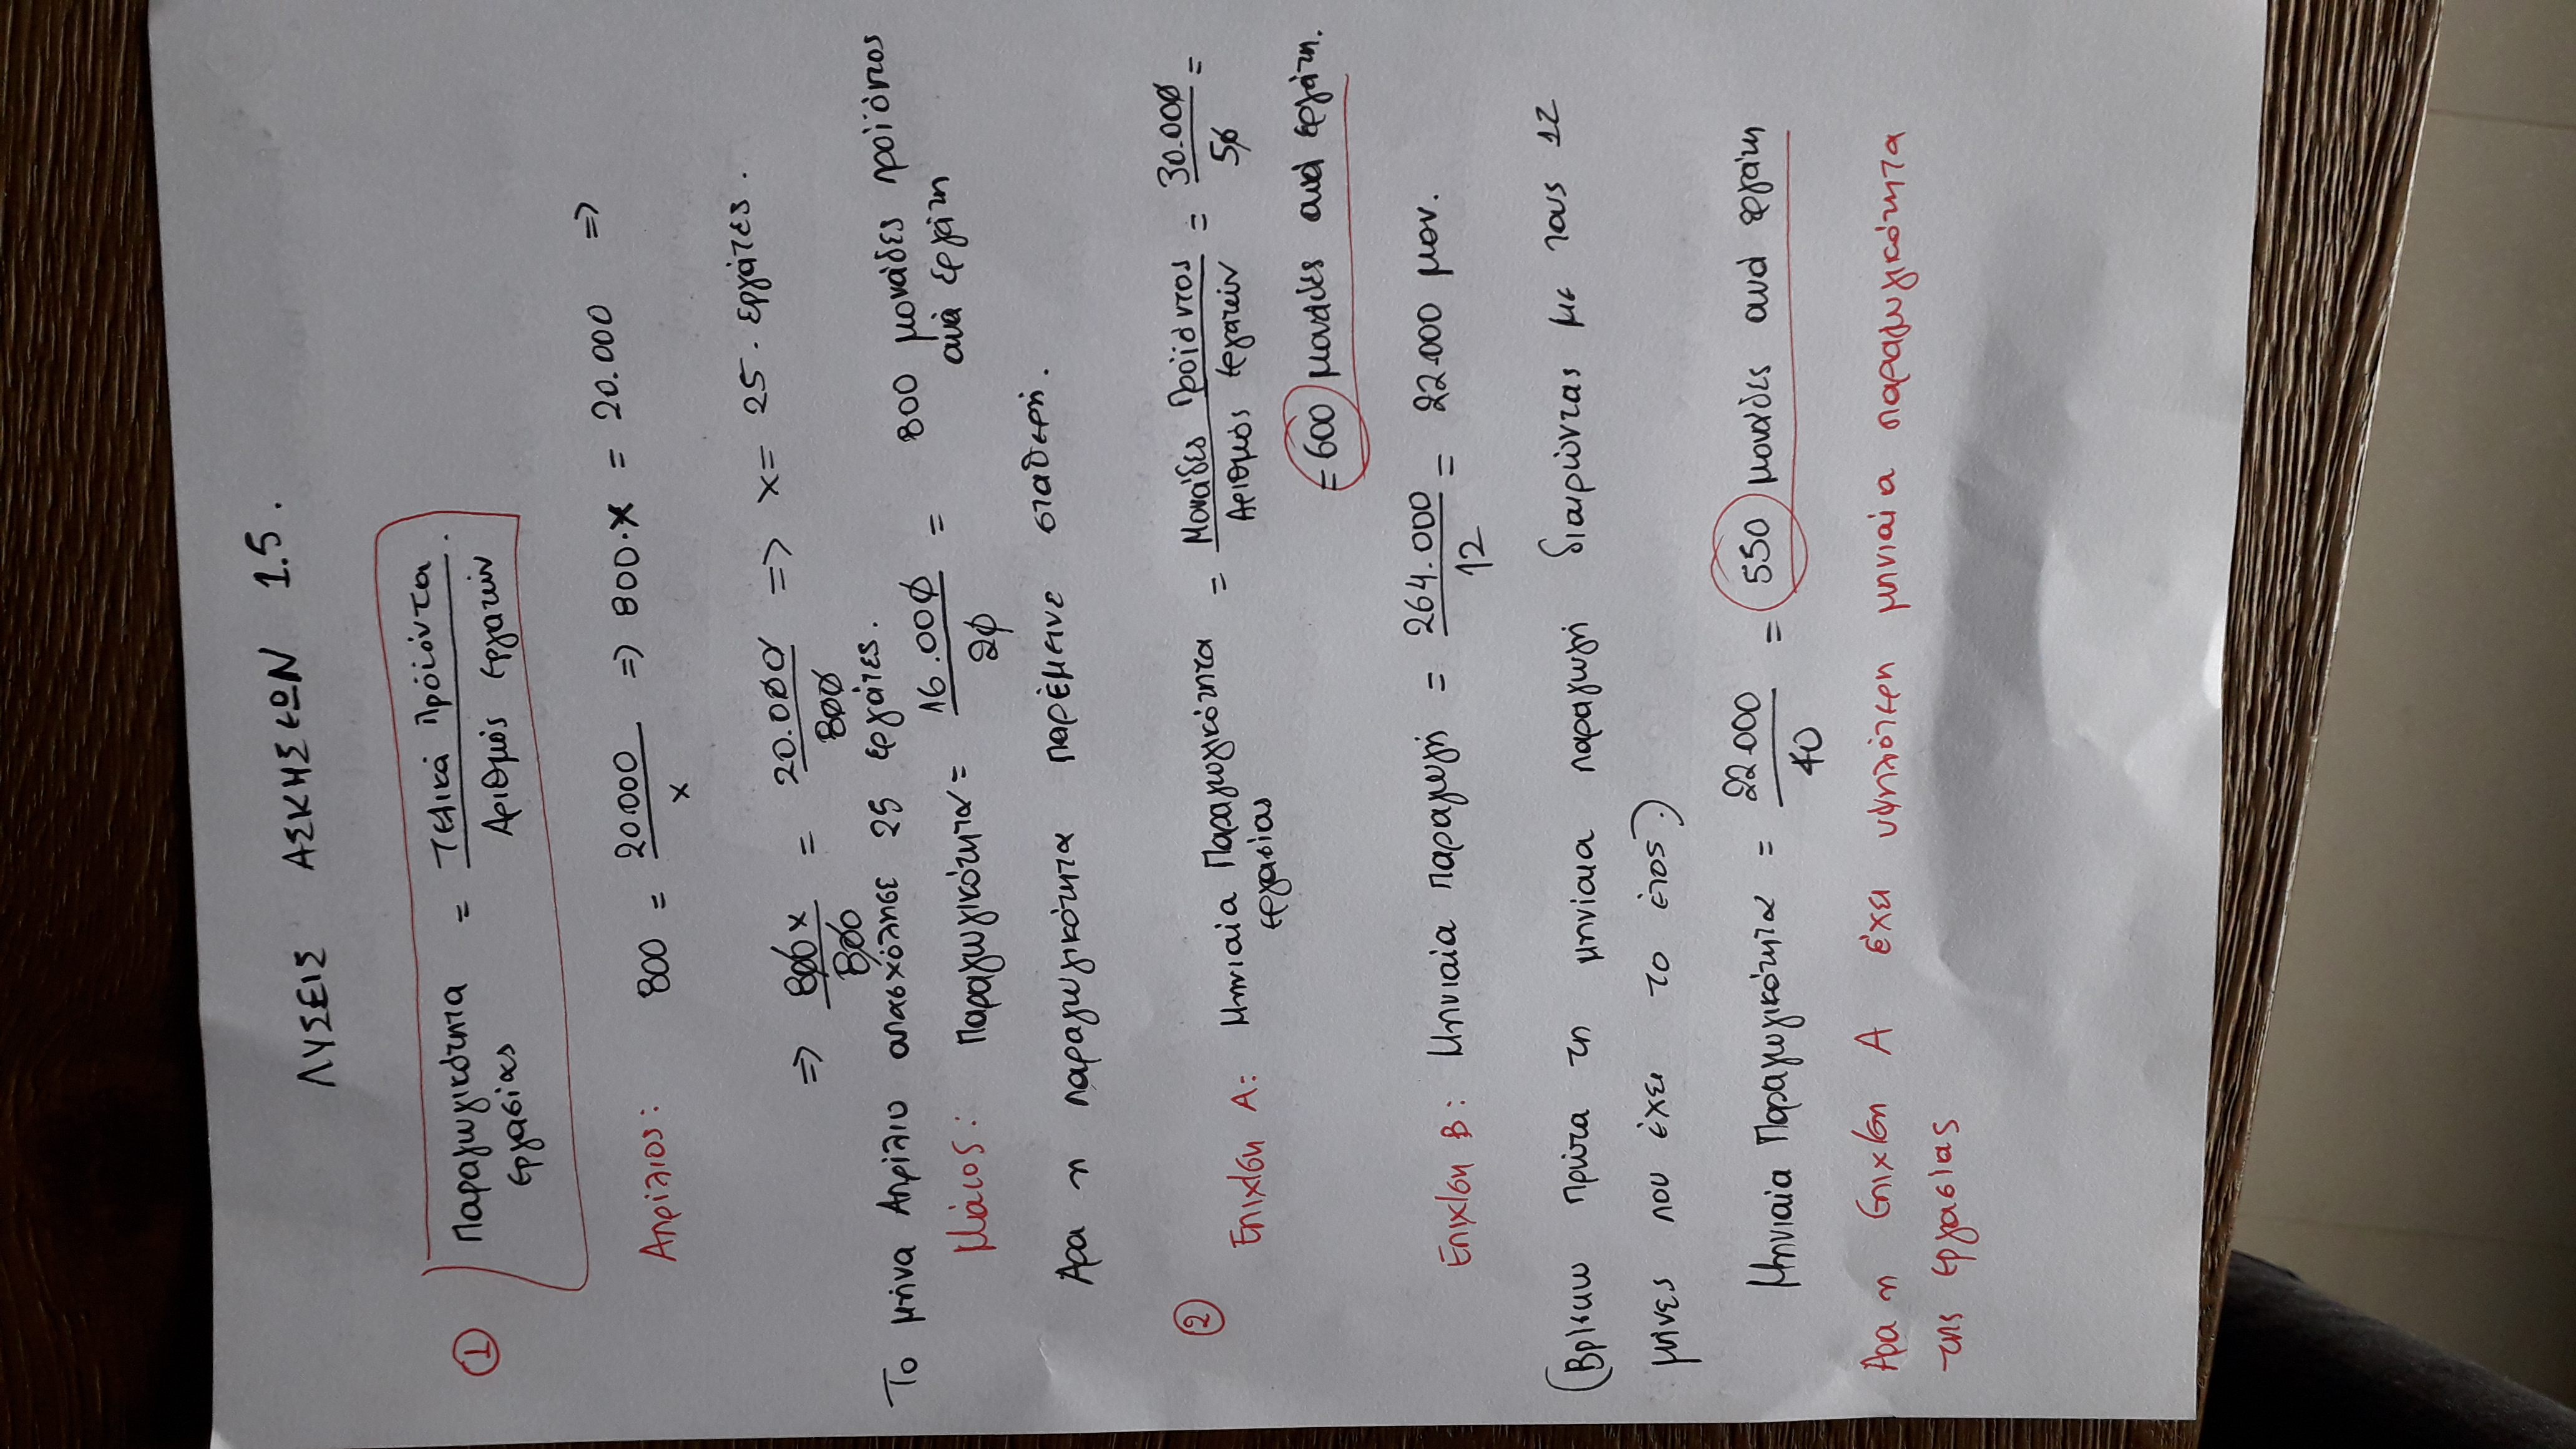 ΛΥΣΕΙΣ ΑΣΚΗΣΕΩΝ 1.5.
① Παραγωγικότητα εργασίας = Τελικά Προϊόντα / Αριθμός εργατών
Απρίλιος: 800 = 20.000 / x => 800·x = 20.000 =>
=> 800x / 800 = 20.000 / 800 => x = 25 . εργάτες .
Το μήνα Απρίλιο απασχόλησε 25 εργάτες.
Μάιος: Παραγωγικότητα = 16.000 / 20 = 800 μονάδες προϊόντος ανά εργάτη
Άρα η παραγωγικότητα παρέμεινε σταθερή.
② Επιχ/ση Α: Μηνιαία Παραγωγικότητα εργασίας = Μονάδες Προϊόντος / Αριθμός εργατών = 30.000 / 50 =
= 600 μονάδες ανά εργάτη.
Επιχ/ση Β: Μηνιαία παραγωγή = 264.000 / 12 = 22.000 μον.
(Βρίσκω πρώτα τη μηνίαια παραγωγή διαιρώντας με τους 12
μήνες που έχει το έτος.)
Μηνιαία Παραγωγικότητα = 22.000 / 40 = 550 μονάδες ανά εργάτη
Άρα η επιχ/ση Α έχει υψηλότερη μηνιαία παραγωγικότητα
της εργασίας